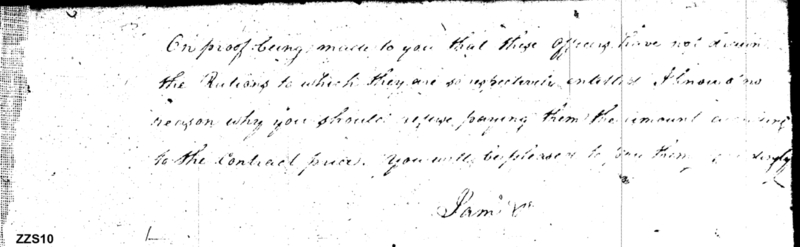 On proof being made to you that these Officers have not drawn
the Rations to which they are so respectively entitled I know no
reason why you should refuse paying them the amount according
to the Contract prices. You will be pleased to pay them accordingly
I am &c
ZZS10